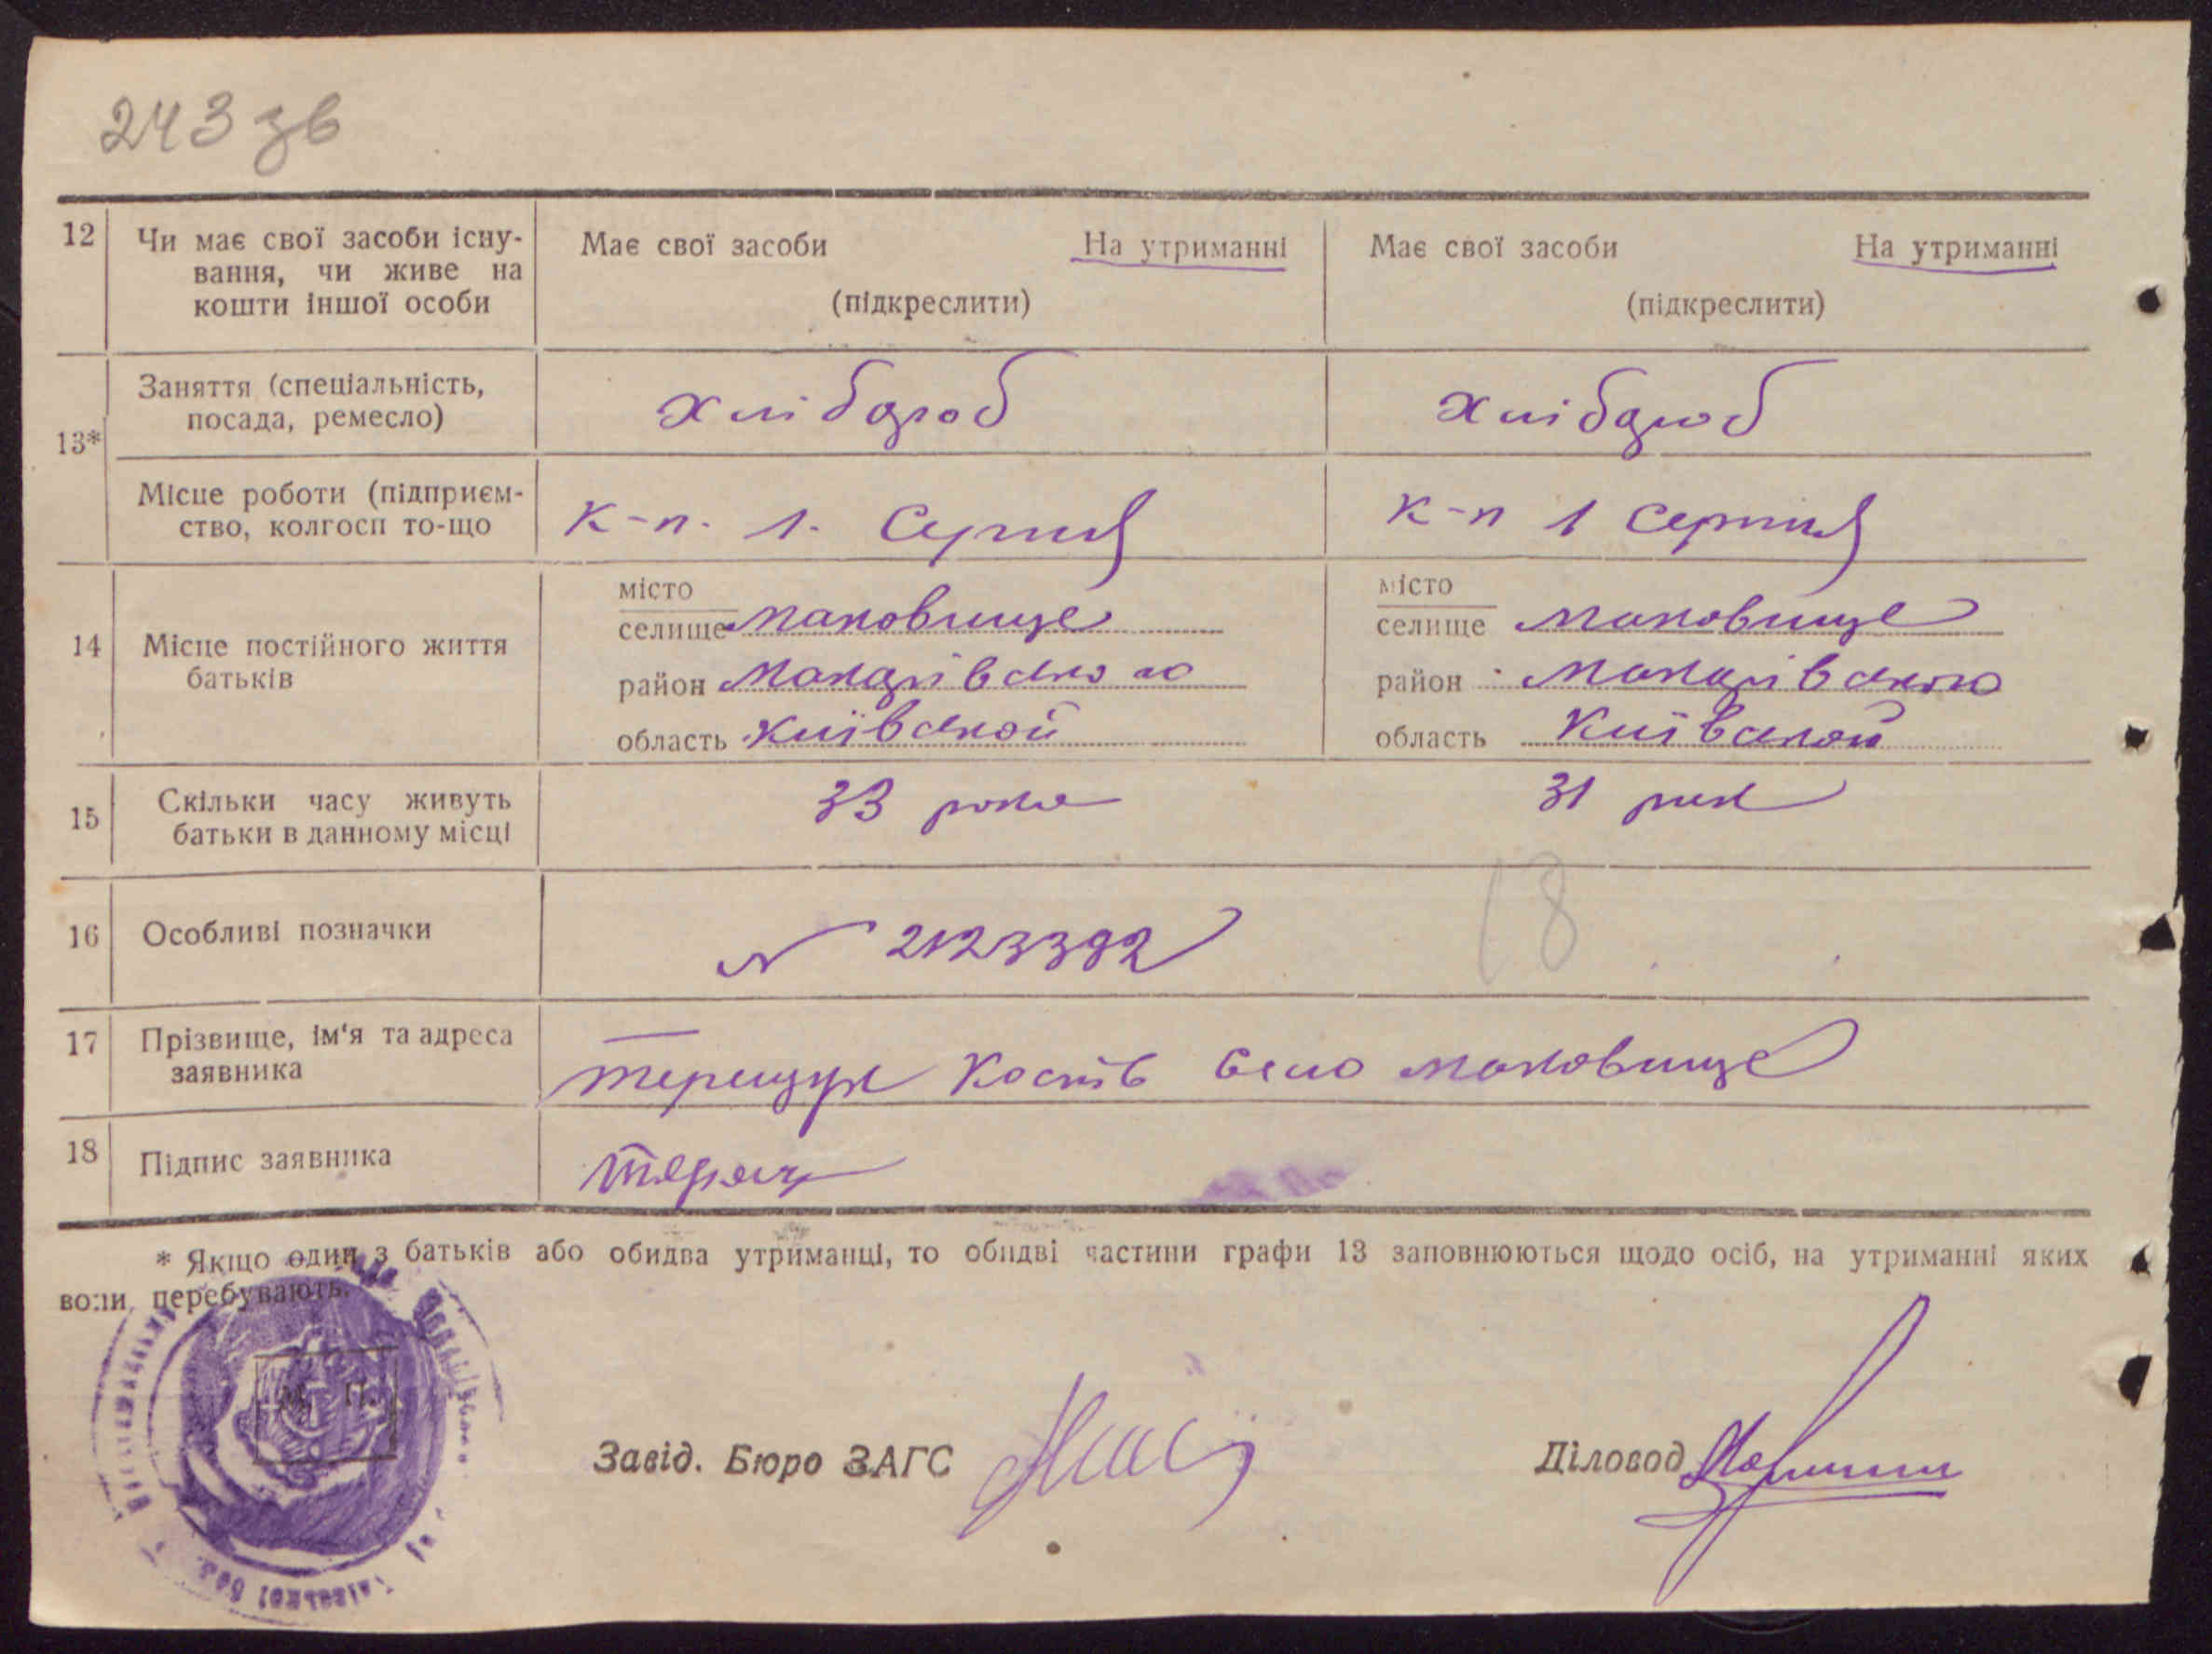 243 зв
12 Чи має свої засоби існу-
вання, чи живе на
кошти іншої особи
Має свої засоби На утриманні
(підкреслити)
Має свої засоби На утриманні
(підкреслити)
13*
Заняття (спеціальність,
посада, ремесло)
хлібороб
хлібороб
Місце роботи (підприєм-
ство, колгосп то-що
к-п. 1. Серпня
к-п 1 Серпня
14 Місце постійного життя
батьків
місто
селище Маковище
район Макарівського
область Київської
місто
селище Маковище
район Макарівського
область Київської
15 Скільки часу живуть
батьки в данному місці
33 роки
31 рік
16 Особливі позначки
N 2123392
18
17 Прізвище, ім'я та адреса
заявника
Терещук Костів село Маковище
18 Підпис заявника
* Якщо один з батьків або обидва утриманці, то обидві частини графи 13 заповнюються щодо осіб, на утриманні яких
вони перебувають.
М. П.
Завід. Бюро ЗАГС
Діловод